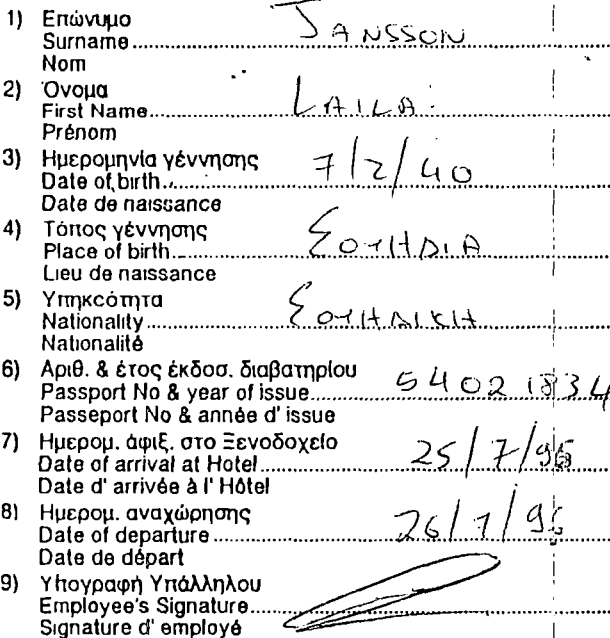 1) Επώνυμο
Surname JANSSON
Nom
2) Όνομα
First Name LAILA
Prénom
3) Ημερομηνία γέννησης
Date of birth 7/2/40
Date de naissance
4) Τόπος γέννησης
Place of birth ΣΟΥΗΔΙΑ
Lieu de naissance
5) Υπηκοότητα
Nationality ΣΟΥΗΔΙΚΗ
Nationalité
6) Αριθ. & έτος έκδοσ. διαβατηρίου
Passport No & year of issue 54021834
Passeport No & année d' issue
7) Ημερομ. άφιξ. στο Ξενοδοχείο
Date of arrival at Hotel 25/7/96
Date d' arrivée à l' Hôtel
8) Ημερομ. αναχώρησης
Date of departure 26/7/96
Date de départ
9) Υπογραφή Υπάλληλου
Employee's Signature
Signature d' employé